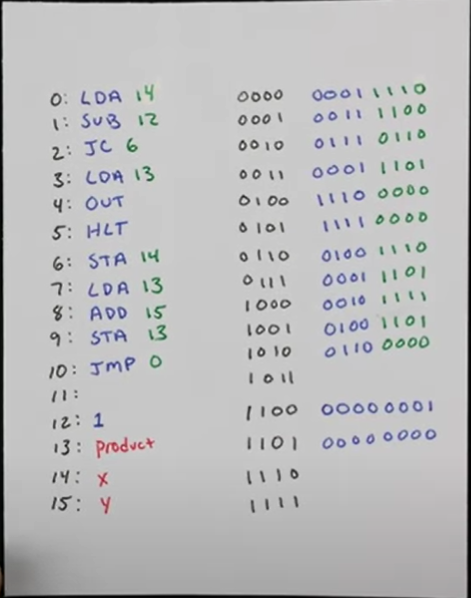 0: LDA 14 0000 0001 1110
1: SUB 12 0001 0011 1100
2: JC 6 0010 0111 0110
3: LDA 13 0011 0001 1101
4: OUT 0100 1110 0000
5: HLT 0101 1111 0000
6: STA 14 0110 0100 1110
7: LDA 13 0111 0001 1101
8: ADD 15 1000 0010 1111
9: STA 13 1001 0100 1101
10: JMP 0 1010 0110 0000
11: 1011
12: 1 1100 00000001
13: product 1101 00000000
14: x 1110
15: y 1111